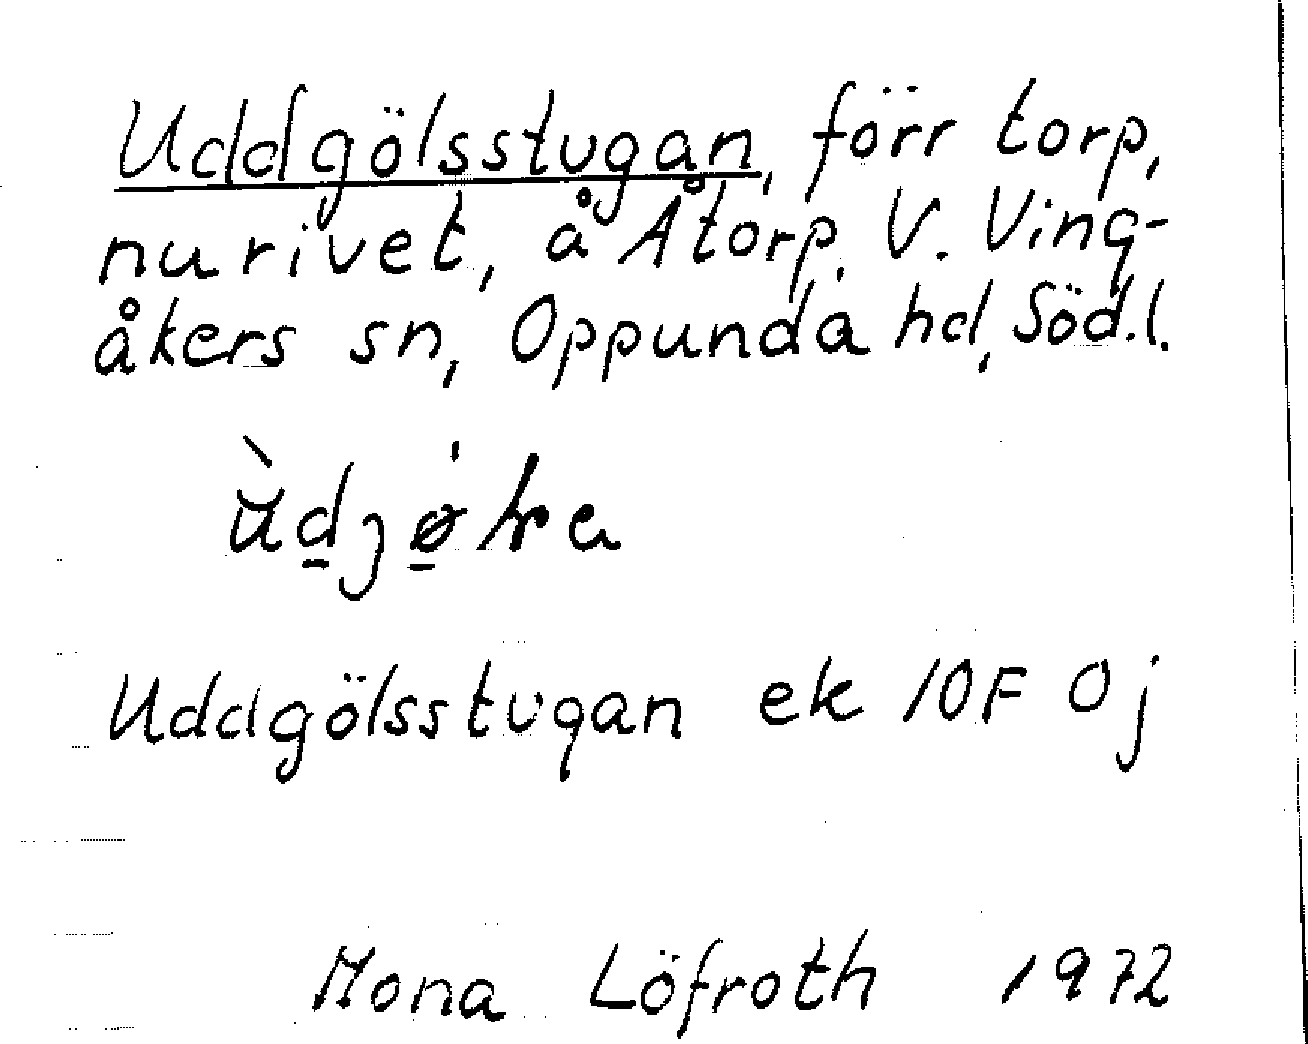 Uddgölsstugan, förr torp,
nu rivet, å Åtorp. V. Ving-
åkers sn, Oppunda hd, Söd.l.
Uddgölsstugan ek 10F 0j
Mona Löfroth 1972